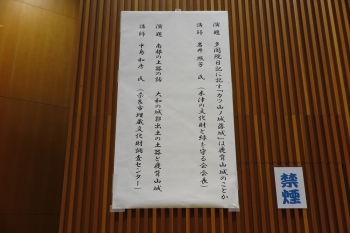 演題 多聞院日記に記す「カツ山ノ城落城」は鹿背山城のことか
講師 岩井照子 氏（木津の文化財と緑を守る会会長）
演題 南都の土器の話 大和の城郭出土の土器と鹿背山城
講師 中島和彦 氏（奈良市埋蔵文化財調査センター）
禁煙